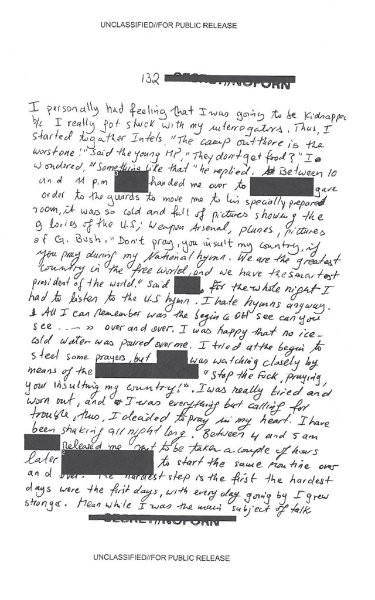 UNCLASSIFIED//FOR PUBLIC RELEASE
132
I personally had feeling that I was going to be kidnapped
b/c I really got stuck with my interrogators. Thus, I
started to gather Intels, "The camp out there is the
worst one!" Said the young MP, "They don't get food?" I
wondered, "Something like that" he replied. Between 10
and 11 p.m handed me over to gave
order to the guards to move me to his specially prepared
room, it was so cold and full of pictures showing the
glories of the U.S; Weapon Arsenal, planes, pictures
of G. Bush. "Don't pray, you insult my country, if
you pray during my National hymn. We are the greatest
Country in the free world, and we have the smartest
president of the world." Said for the whole night I
had to listen to the US hymn. I hate hymns anyway.
All I can remember was the begin "Oh! see can you
see . . . ." over and over. I was happy that no ice-
cold water was poured over me. I tried at the begin to
steel some prayers, but was watching closely by
means of the "Stop the fuck, praying,
you insulting my country!". I was really tired and
worn out, and I was everything but calling for
trouble, thus, I decided to pray in my heart. I have
been shaking all night long. Between 4 and 5 am
released me to be taken a couple of hours
later to start the same routine over
and over. The hardest step is the first the hardest
days were the first days, with every day going by I grew
stronger. Mean while I was the main subject of talk
SECRET//NOFORN
UNCLASSIFIED//FOR PUBLIC RELEASE